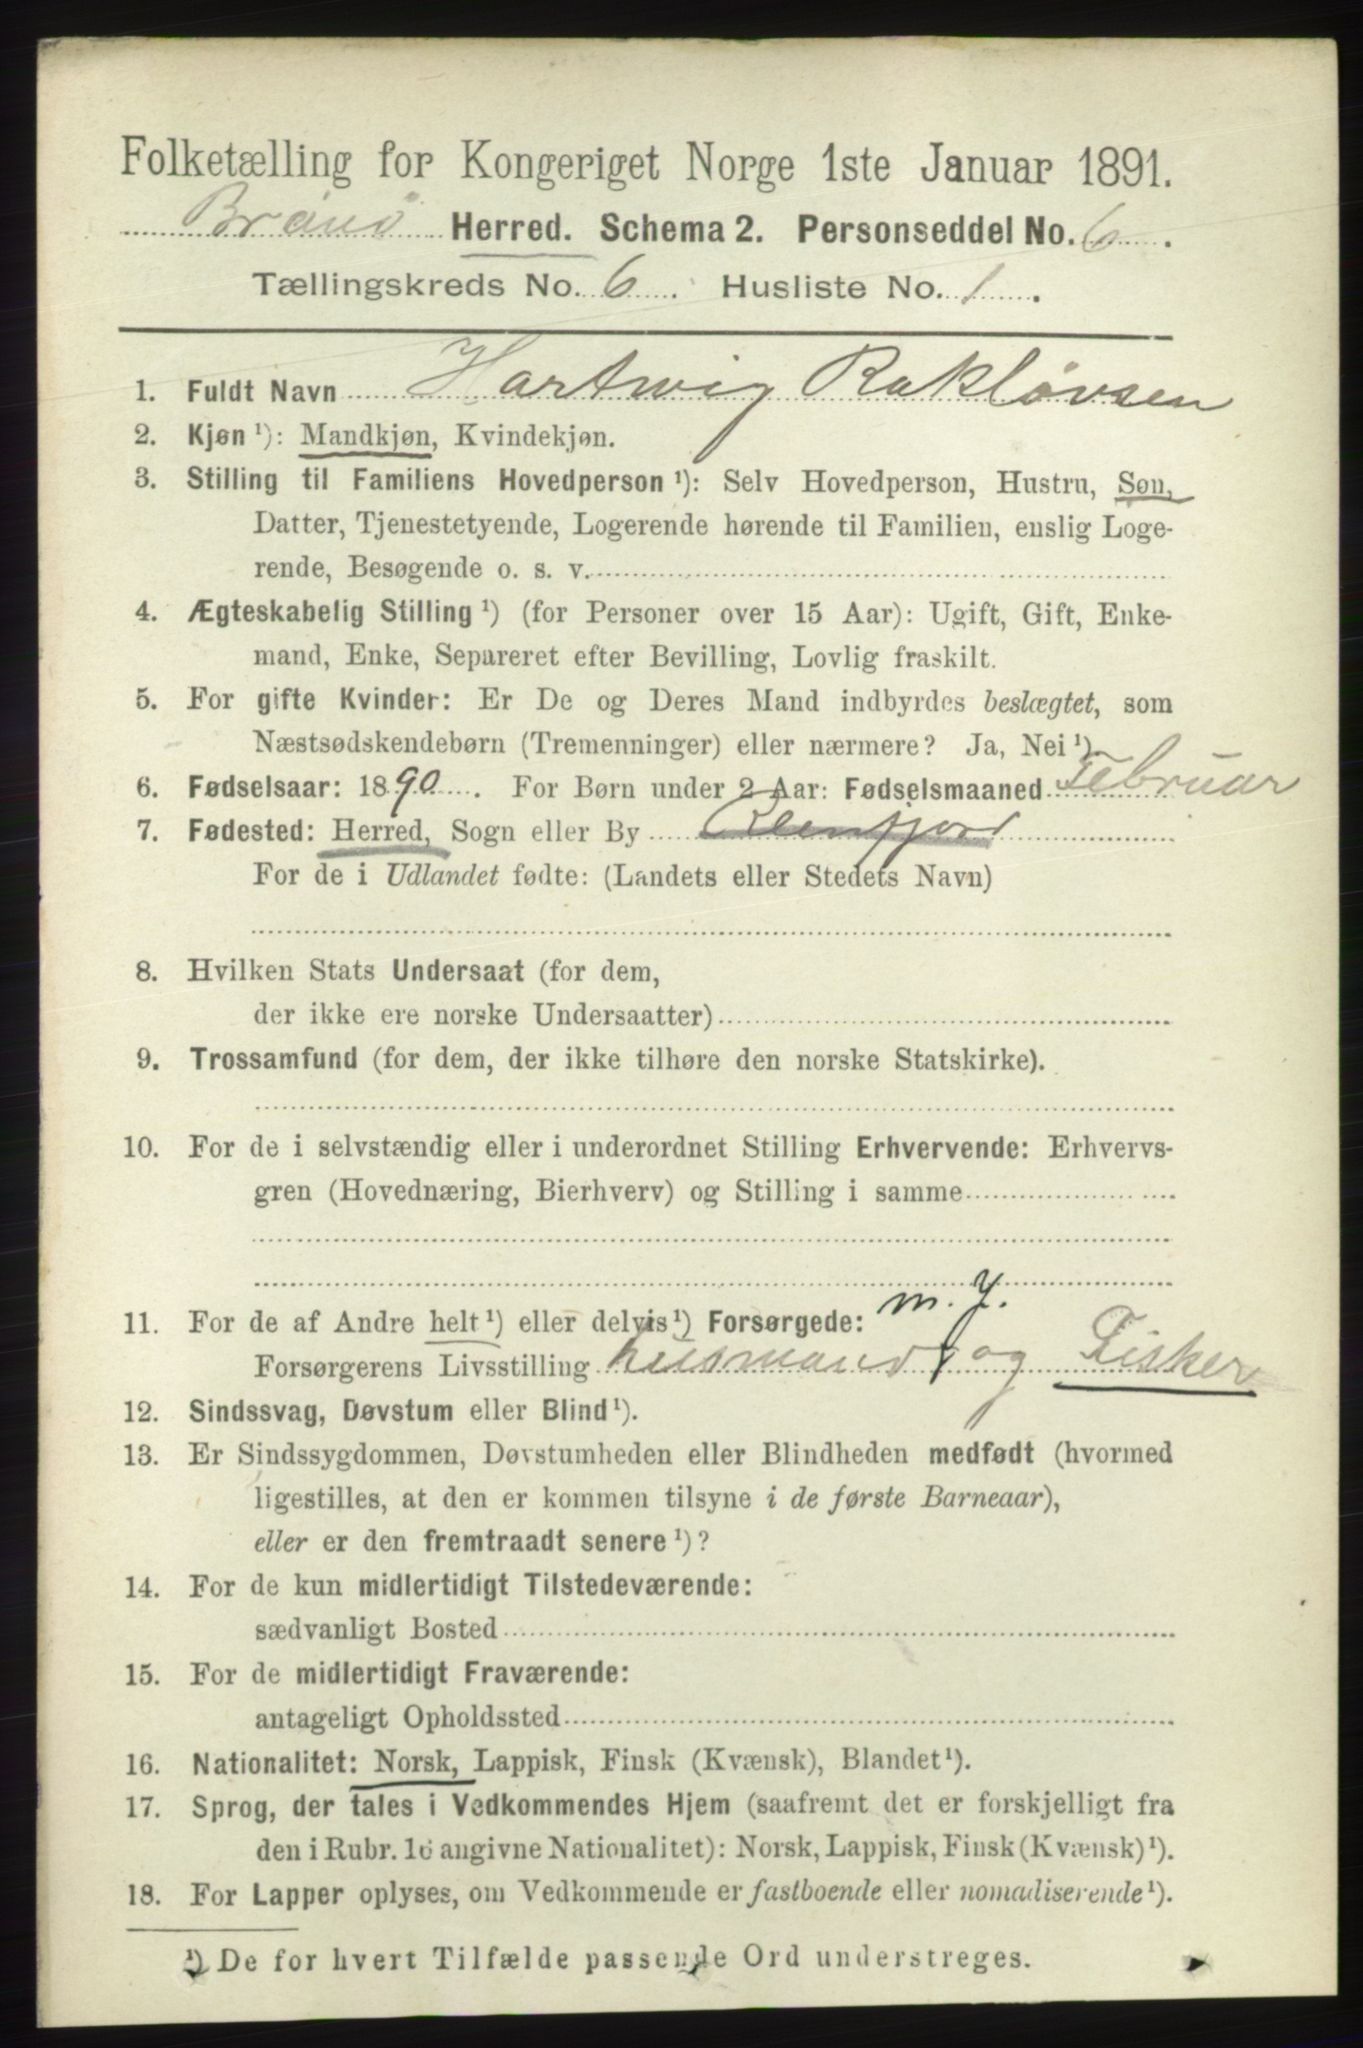 Folketælling for Kongeriget Norge 1ste Januar 1891.
Brönö Herred. Schema 2. Personseddel No. 6.
Tællingskreds No. 6. Husliste No. 1.
1. Fuldt Navn Hartwig Rakløvsen
2. Kjøn ¹): Mandkjøn, Kvindekjøn.
3. Stilling til Familiens Hovedperson ¹): Selv Hovedperson, Hustru, Søn,
Datter, Tjenestetyende, Logerende hørende til Familien, enslig Loge-
rende, Besøgende o. s. v.
4. Ægteskabelig Stilling ¹) (for Personer over 15 Aar): Ugift, Gift, Enke-
mand, Enke, Separeret efter Bevilling, Lovlig fraskilt.
5. For gifte Kvinder: Er De og Deres Mand indbyrdes beslægtet, som
Næstsødskendebørn (Tremenninger) eller nærmere? Ja, Nei ¹).
6. Fødselsaar: 1890. For Børn under 2 Aar: Fødselsmaaned Februar
7. Fødested: Herred, Sogn eller By
For de i Udlandet fødte: (Landets eller Stedets Navn)
8. Hvilken Stats Undersaat (for dem,
der ikke ere norske Undersaatter)
9. Trossamfund (for dem, der ikke tilhøre den norske Statskirke).
10. For de i selvstændig eller i underordnet Stilling Erhvervende: Erhvervs-
gren (Hovednæring, Bierhverv) og Stilling i samme
11. For de af Andre helt ¹) eller delvis ¹) Forsørgede: m. J.
Forsørgerens Livsstilling husmand og Fisker
12. Sindssvag, Døvstum eller Blind ¹).
13. Er Sindssygdommen, Døvstumheden eller Blindheden medfødt (hvormed
ligestilles, at den er kommen tilsyne i de første Barneaar),
eller er den fremtraadt senere ¹)?
14. For de kun midlertidigt Tilstedeværende:
sædvanligt Bosted
15. For de midlertidigt Fraværende:
antageligt Opholdssted
16. Nationalitet: Norsk, Lappisk, Finsk (Kvænsk), Blandet ¹).
17. Sprog, der tales i Vedkommendes Hjem (saafremt det er forskjelligt fra
den i Rubr. 16 angivne Nationalitet): Norsk, Lappisk, Finsk (Kvænsk) ¹).
18. For Lapper oplyses, om Vedkommende er fastboende eller nomadiserende ¹).
¹) De for hvert Tilfælde passende Ord understreges.